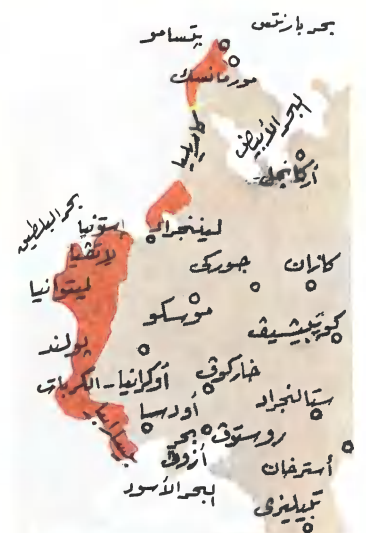 بحر بارنتس
پتسامو
مورمانسك
كاريليا
البحر الأبيض
أركانجل
بحر البلطيق
إستونيا
ليننجراد
لاتفيا
ليتوانيا
جوركى
كازان
موسكو
كويبيشيف
پولند
خاركوف
أوكرانيا - الكربات
ستالنجراد
أودسا
بسارابيا
روستوف
بحر
أزوف
أسترخان
البحر الأسود
تبيليزى